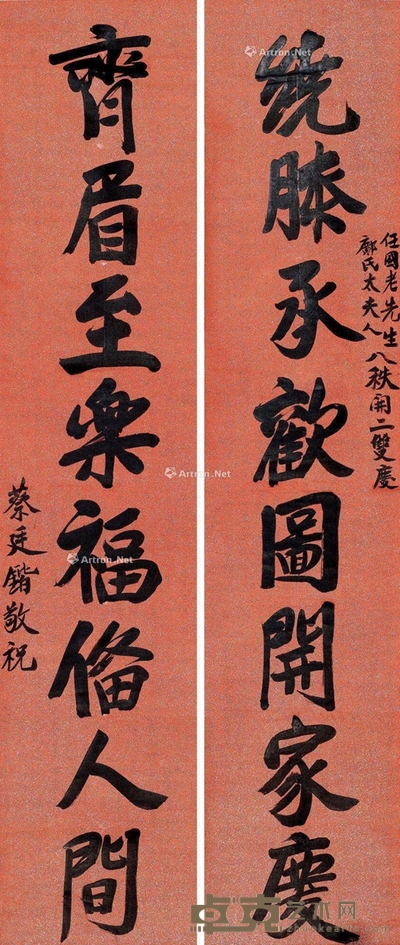 任國老先生
鄺氏太夫人
八秩開二雙慶
繞膝承歡圖開家慶
齊眉至樂福備人間
蔡廷鍇敬祝
Artron.Net
Artron.Net
Artron.Net
Artron.Net
卓克艺术网